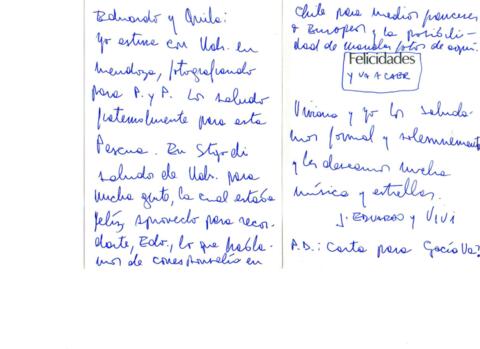 Eduardo y
Yo estuve con Uds. en
Mendoza, fotografiando
para P. y P. Los saludo
fraternalmente para esta
Pascua. En
saludo de Uds. para
mucha gente, la cual estaba
feliz, aprovecho para recor-
darte, Edo., lo que habla-
mos de corresponsalía en
Chile para medios franceses
o Europeos y la posibili-
dad de mandar fotos de aquí.
Felicidades
Y VA A CAER
Viviana y yo los saluda-
mos formal y solemnemente
y les deseamos mucha
música y estrellas.
J. EDUARDO y VIVI
P.D.: Carta para